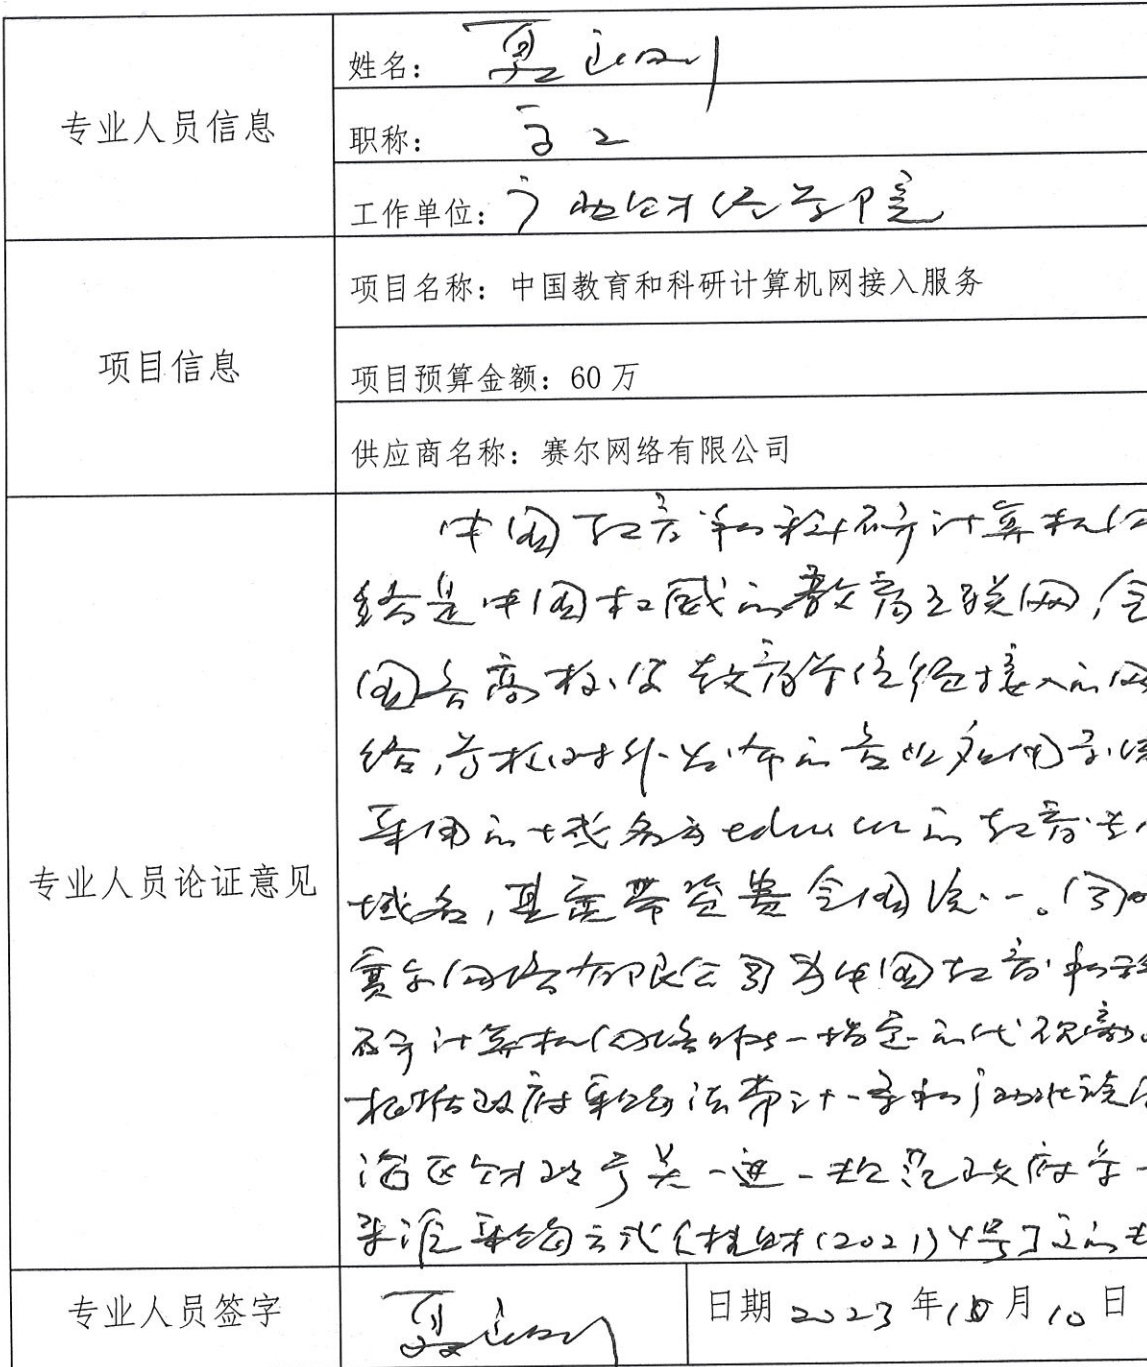 专业人员信息
姓名：夏
职称：高工
工作单位：广西财经学院
项目信息
项目名称：中国教育和科研计算机网接入服务
项目预算金额：60万
供应商名称：赛尔网络有限公司
专业人员论证意见
中国教育和科研计算机网
络是中国权威的教育互联网，全
国各高校、教育单位接入的网
络，学校对外发布的各应用系统
采用的域名为edu.cn的教育
域名，其宽带资费全国统一。同时
赛尔网络有限公司为中国教育和科
研计算机网络唯一指定的代
根据政府采购法第三十一条和广西壮族自
治区财政厅关一进一规范政府单一
来源采购方式（桂财（2021）4号
专业人员签字
夏
日期 2023 年 10 月 10 日